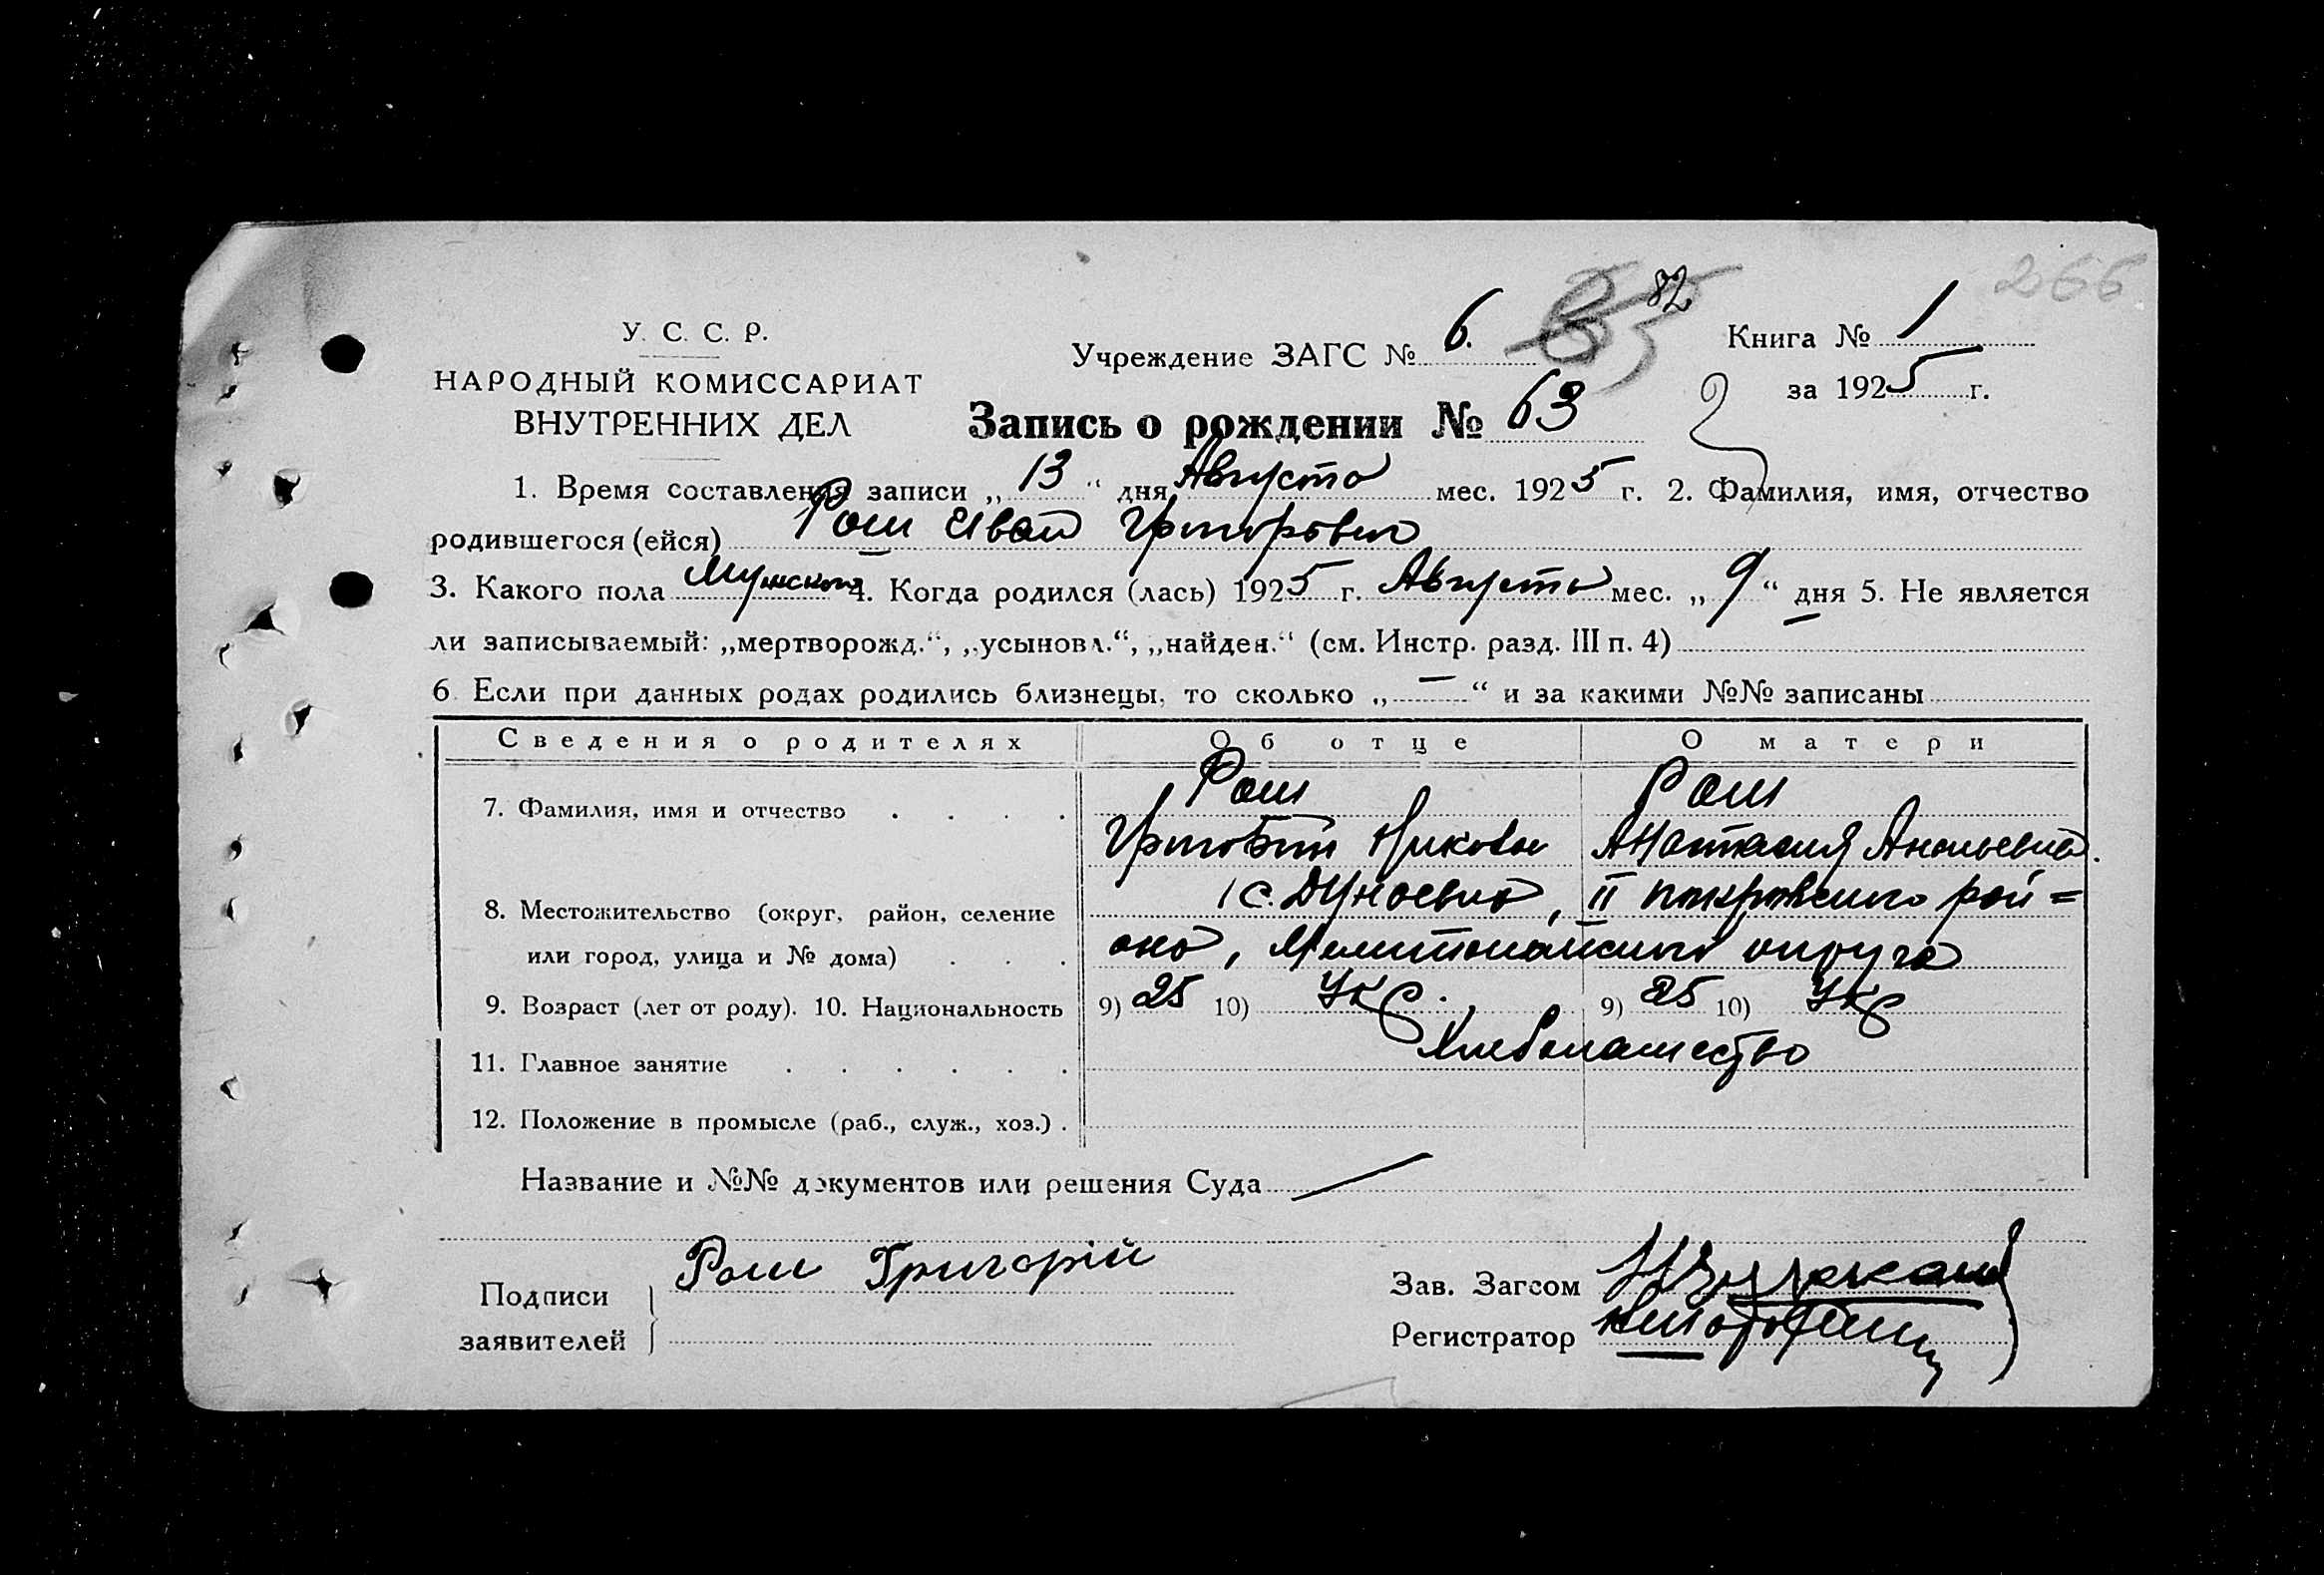 266
82
У. С. С. Р.
НАРОДНЫЙ КОМИССАРИАТ
ВНУТРЕННИХ ДЕЛ
Учреждение ЗАГС № 6.
Книга № 1
за 1925 г.
Запись о рождении № 63
1. Время составления записи „ 13 “ дня Августа мес. 1925 г. 2. Фамилия, имя, отчество
родившегося (ейся) Рош Иван
3. Какого пола Мужского 4. Когда родился (лась) 1925 г. Августа мес. „ 9 “ дня 5. Не является
ли записываемый: „мертворожд.“, „усыновл.“, „найден.“ (см. Инстр. разд. III п. 4) —
6. Если при данных родах родились близнецы, то сколько „ — “ и за какими №№ записаны
Сведения о родителях Об отце О матери
7. Фамилия, имя и отчество . . . . Рош Рош
Анастасия
8. Местожительство (округ, район, селение с. Дунаевка, II Покровского рай=
или город, улица и № дома) . . . она, округа
9. Возраст (лет от роду). 10. Национальность 9) 25 10) Укр. 9) 25 10) Укр
11. Главное занятие . . . . . . Хлебопашество
12. Положение в промысле (раб., служ., хоз.) .
Название и №№ документов или решения Суда —
Подписи
заявителей } Рош Григорій
Зав. Загсом
Регистратор